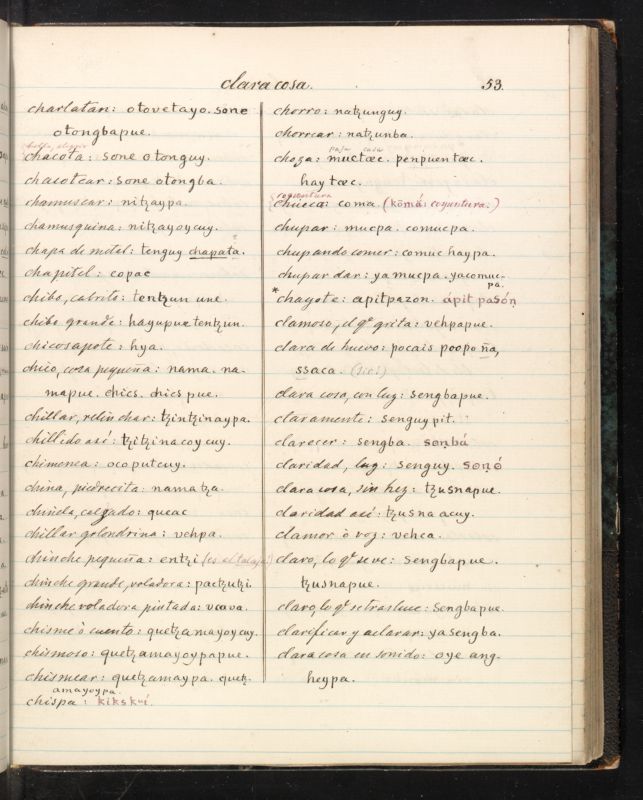 clara cosa. 53.
charlatan: otovetayo. sone
otongbapue.
chacota: sone otonguy.
chacotear: sone otongba.
chamuscar: nitʒaypa.
chamusquina: nitʒayoycuy.
chapa de metel: tenguy chapata.
chapitel: copac
chibo, cabrito: tentʒun une.
chibo grande: hayupuæ tentʒun.
chicosapote: hya.
chico, cosa pequeña: nama. na-
mapue. chics. chics pue.
chillar, relinchar: tʒintʒinaypa.
chillido asi: tʒitʒinacoycuy.
chimenea: ocoputcuy.
china, piedrecita: namatʒa.
chinela, calzado: queac
chillar golondrina: vehpa.
chinche pequeña: entʒi (es el talaje!)
chinche grande, voladora: pactʒutʒi
chinche voladora pintada: vcava.
chisme ò cuento: quetʒamayoycuy.
chismoso: quetʒamayoypapue.
chismear: quetʒamaypa. quetʒ-
amayoypa.
chispa: kikskuí.
chorro: natʒunguy.
chorrear: natʒunba.
paja casa
choza: muctæc. penpuentæc.
haytæc.
coyuntura
chueca: coma (kōmá: coyuntura.)
chupar: mucpa. comucpa.
chupando comer: comuc haypa.
chupar dar: yamucpa. yacomuc-
pa.
* chayote: apitpazon. ápit pasóṇ
clamoso, el qᵉ grita: vehpapue.
clara de huevo: pocais poopo ña,
ssaca. (sic!)
clara cosa, con luz: sengbapue.
claramente: senguy pit.
clarecer: sengba. soṇbá
claridad, luz: senguy. soṇó
clara cosa, sin hez: tʒusnapue.
claridad asi: tʒusnacuy.
clamor ò voz: vehca.
claro, lo qᵉ se ve: sengbapue.
tʒusnapue.
claro, lo qᵉ se trasluce: sengbapue.
clarificar y aclarar: yasengba.
clara cosa en sonido: oye ang-
heypa.